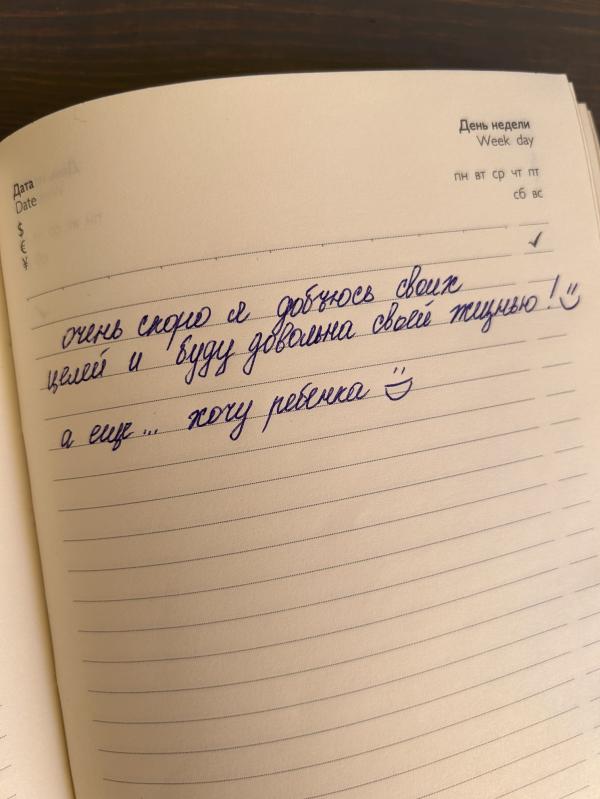 День недели
Week day
пн вт ср чт пт
сб вс
Дата
Date
$
€
¥
очень скоро я добьюсь своих
целей и буду довольна своей жизнью!
а еще... хочу ребенка